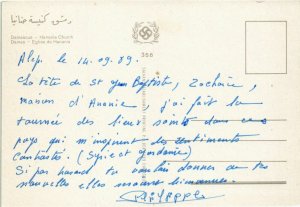 دمشق كنيسة حنانيا
Damascus - Hanania Church
Damas - Eglise de Hanania
368
Alep. le 14.09.89.
La tête de St Jean Baptiste, Zacharie,
maison d'Ananie j'ai fait la
tournée des lieux saints dans ces
pays qui m'inspirent des sentiments
contrastés. (Syrie et Jordanie)
Si par hasard tu voulais donner de tes
nouvelles elles seraient bienvenues.
Philippe